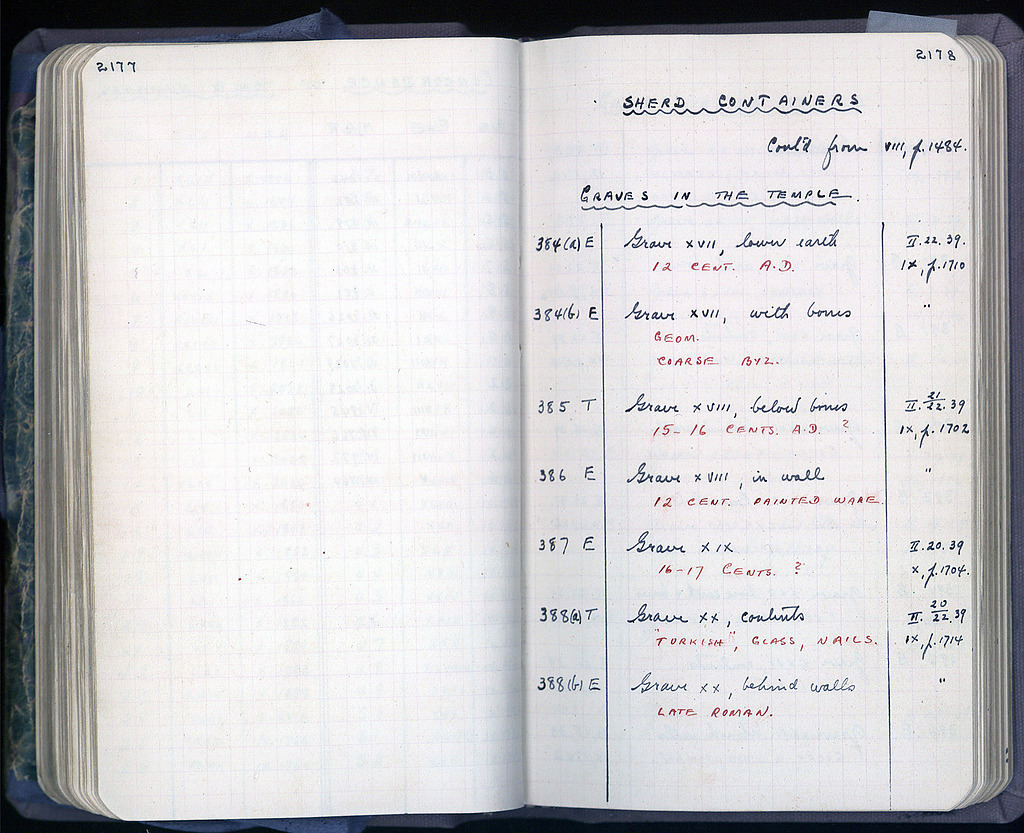 2177
2178
SHERD CONTAINERS
Cont'd from VIII, p. 1484.
GRAVES IN THE TEMPLE.
384(a) E Grave XVII, lower earth II.22.39.
12 CENT. A.D. IX, p. 1710
384(b) E Grave XVII, with bones "
GEOM.
COARSE BYZ.
385 T Grave XVIII, below bones II. 21/22. 39
15-16 CENTS. A.D. ? IX, p. 1702
386 E Grave XVIII, in wall "
12 CENT. PAINTED WARE.
387 E Grave XIX II.20.39
16-17 CENTS. ? X, p. 1704.
388(a) T Grave XX, contents II. 20/22. 39
"TURKISH", GLASS, NAILS. IX, p. 1714
388(b) E Grave XX, behind walls "
LATE ROMAN.